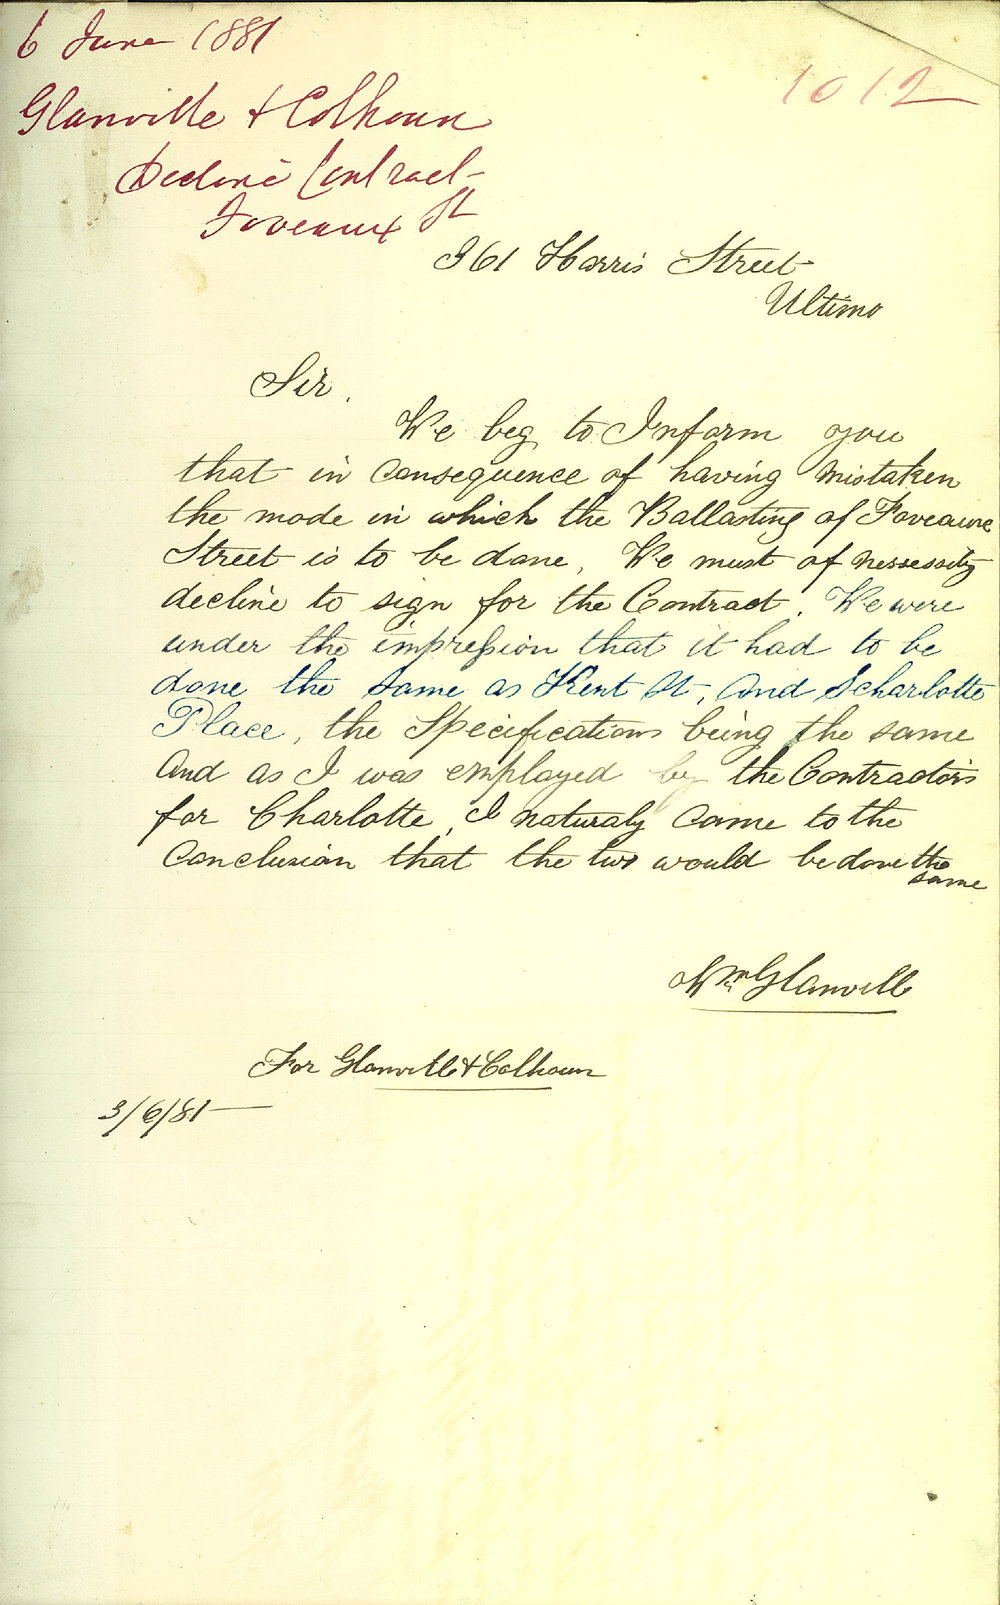 6 June 1881
1012
Glanville & Colhoun
Decline Contract
Foveaux St
361 Harris Street
Ultimo
Sir,
We beg to Inform you
that in consequence of having mistaken
the mode in which the Ballasting of Foveaux
Street is to be done, We must of nessessity
decline to sign for the Contract. We were
under the impression that it had to be
done the same as Kent St, and Scharlotte
Place, the Specifications being the same
And as I was employed by the Contractors
for Charlotte, I naturaly came to the
Conclusion that the two would be done the
same
Wm Glanvill
For Glanvill & Colhoun
3/6/81